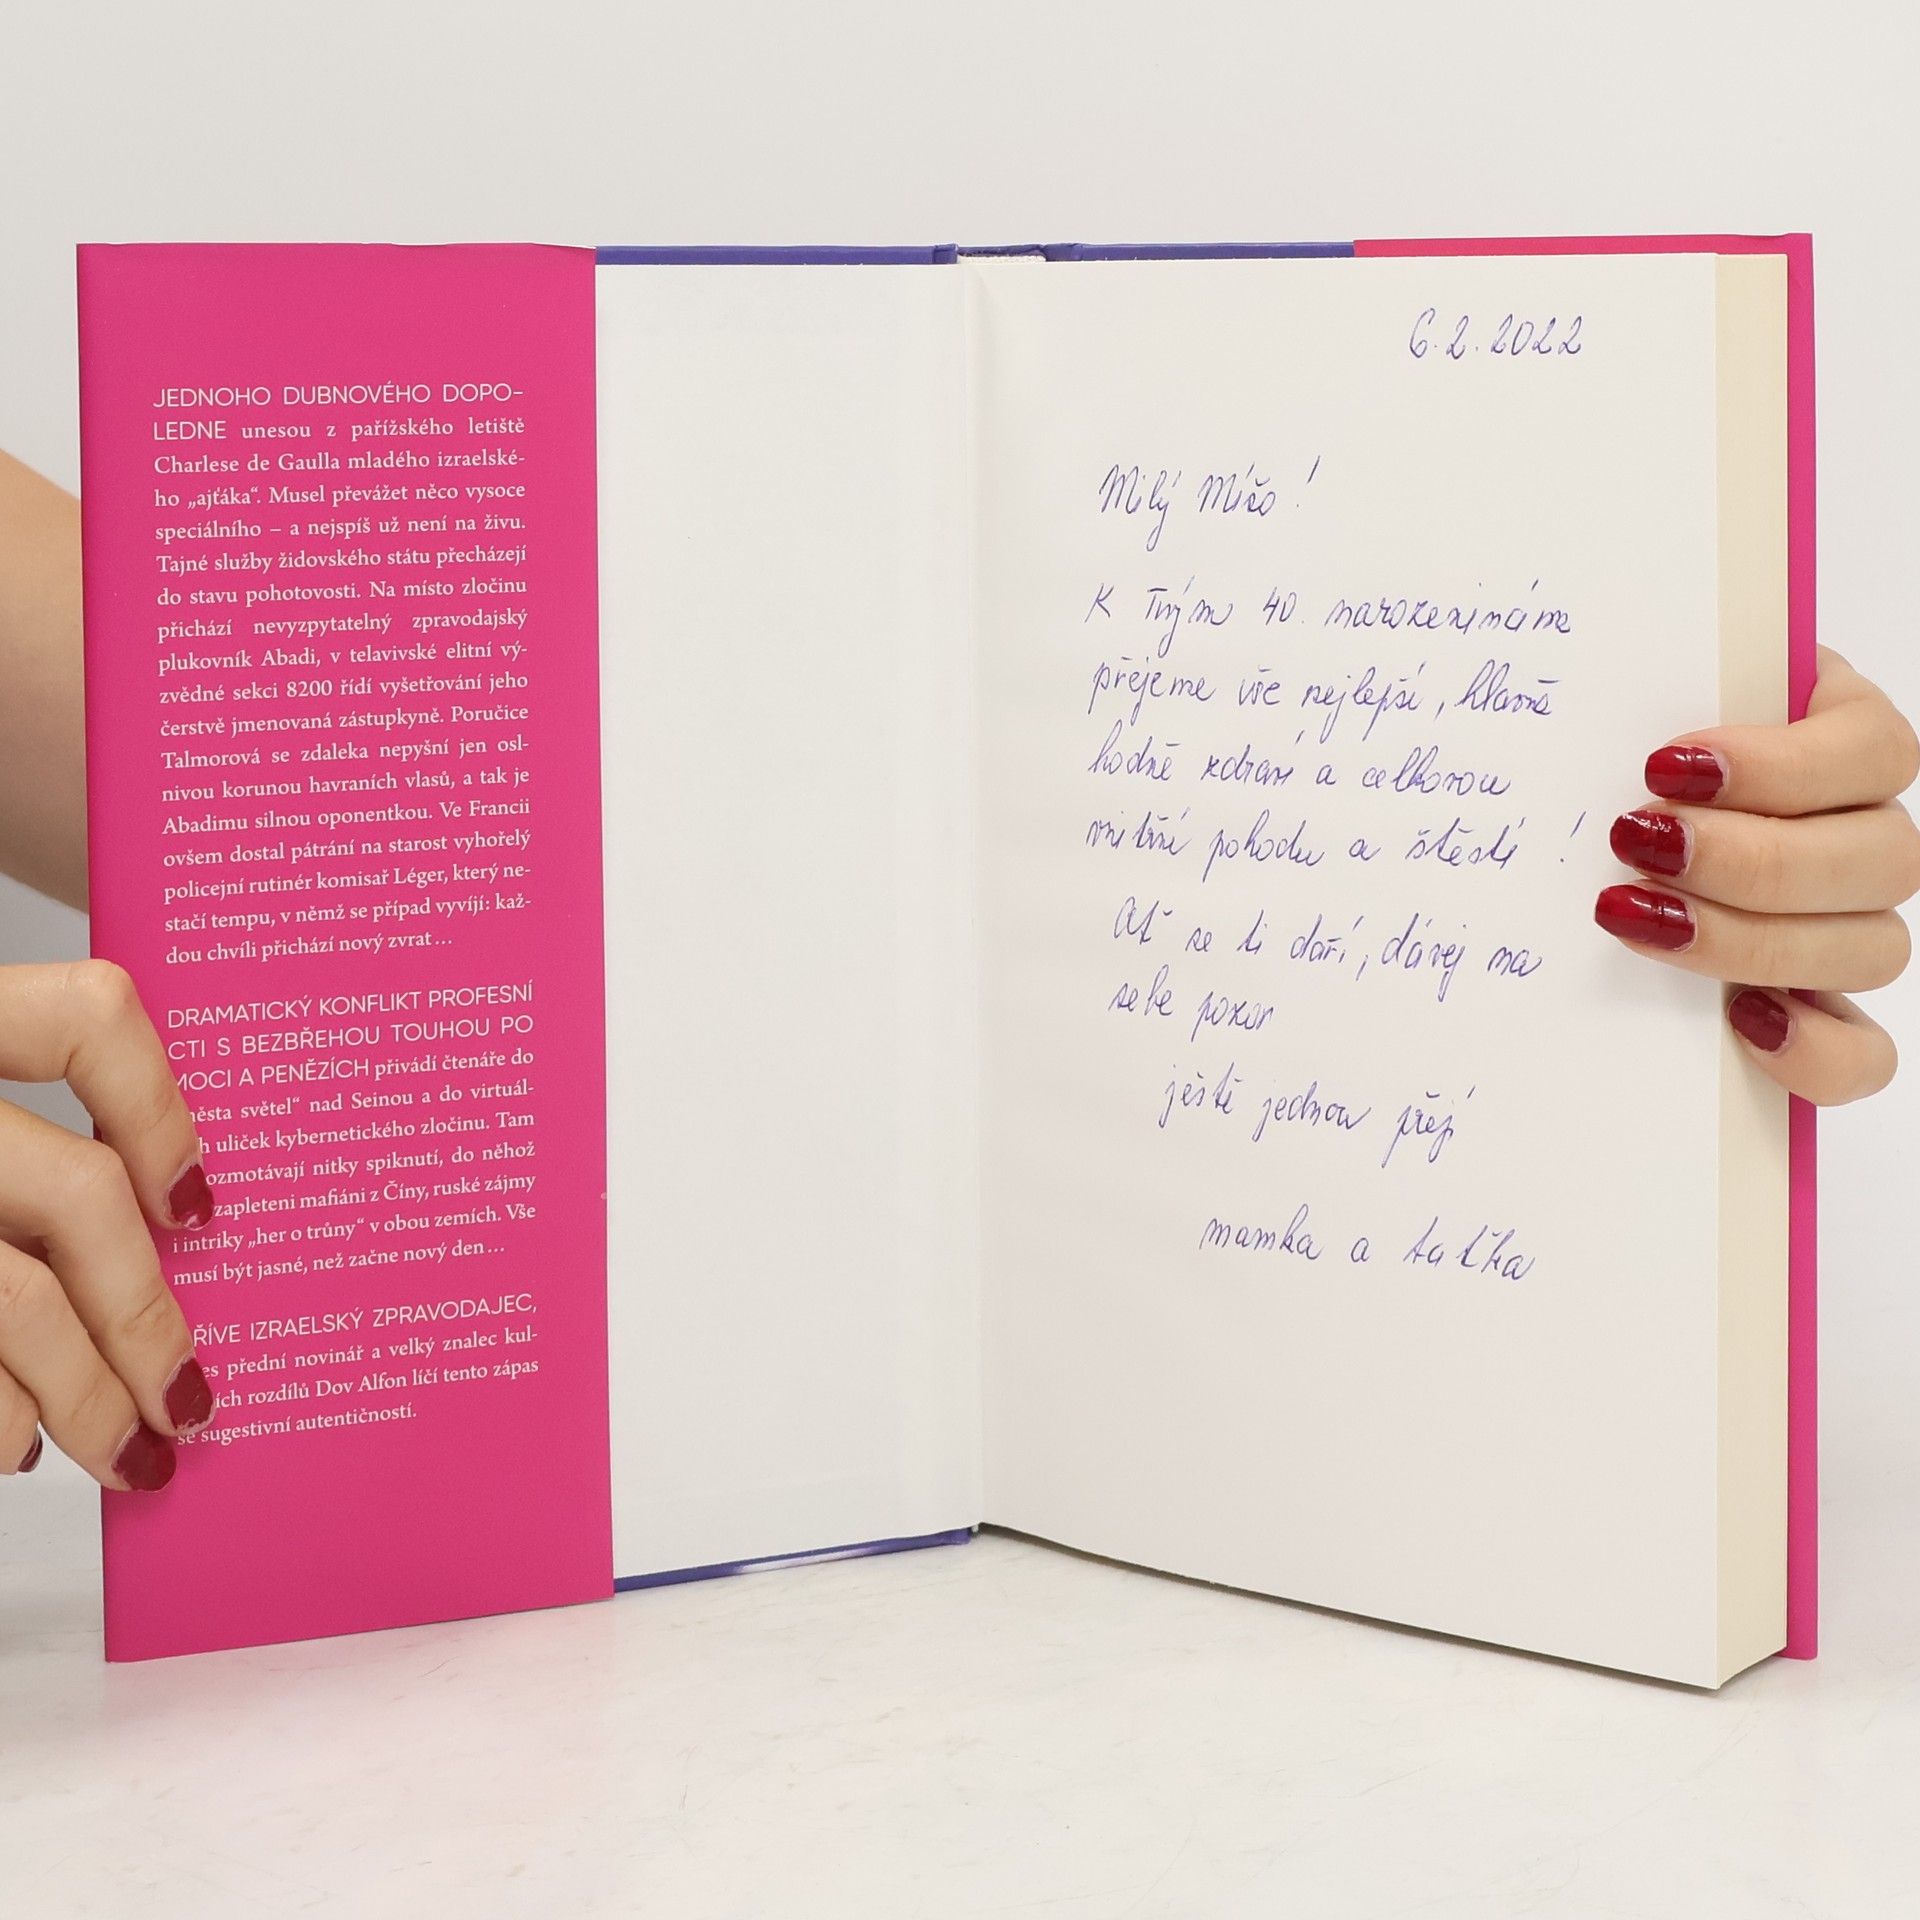 JEDNOHO DUBNOVÉHO DOPO-
LEDNE unesou z pařížského letiště
Charlese de Gaulla mladého izraelské-
ho „ajťáka“. Musel převážet něco vysoce
speciálního – a nejspíš už není na živu.
Tajné služby židovského státu přecházejí
do stavu pohotovosti. Na místo zločinu
přichází nevyzpytatelný zpravodajský
plukovník Abadi, v telavivské elitní vý-
zvědné sekci 8200 řídí vyšetřování jeho
čerstvě jmenovaná zástupkyně. Poručice
Talmorová se zdaleka nepyšní jen osl-
nivou korunou havraních vlasů, a tak je
Abadimu silnou oponentkou. Ve Francii
ovšem dostal pátrání na starost vyhořelý
policejní rutinér komisař Léger, který ne-
stačí tempu, v němž se případ vyvíjí: kaž-
dou chvíli přichází nový zvrat…
DRAMATICKÝ KONFLIKT PROFESNÍ
CTI S BEZBŘEHOU TOUHOU PO
MOCI A PENĚZÍCH přivádí čtenáře do
ěsta světel“ nad Seinou a do virtuál-
h uliček kybernetického zločinu. Tam
ozmotávají nitky spiknutí, do něhož
zapleteni mafiáni z Číny, ruské zájmy
i intriky „her o trůny“ v obou zemích. Vše
musí být jasné, než začne nový den…
ŘÍVE IZRAELSKÝ ZPRAVODAJEC,
es přední novinář a velký znalec kul-
ích rozdílů Dov Alfon líčí tento zápas
se sugestivní autentičností.
6.2.2022
Milý Mížo!
K Tvým 40. narozeninám
přejeme vše nejlepší, hlavně
hodně zdraví a celkovou
vnitřní pohodu a štěstí!
Ať se ti daří, dávej na
sebe pozor
ještě jednou přejí
mamka a taťka